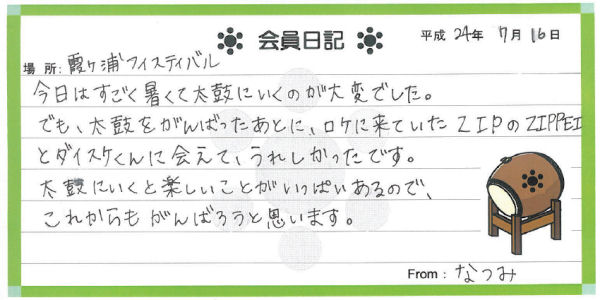 会員日記
平成 24年 7月 16日
場 所: 霞ヶ浦フィスティバル
今日はすごく暑くて太鼓にいくのが大変でした。
でも、太鼓をがんばったあとに、ロケに来ていたZIPのZIPPEI
とダイスケくんに会えて、うれしかったです。
太鼓にいくと楽しいことがいっぱいあるので、
これからもがんばろうと思います。
From: なつみ